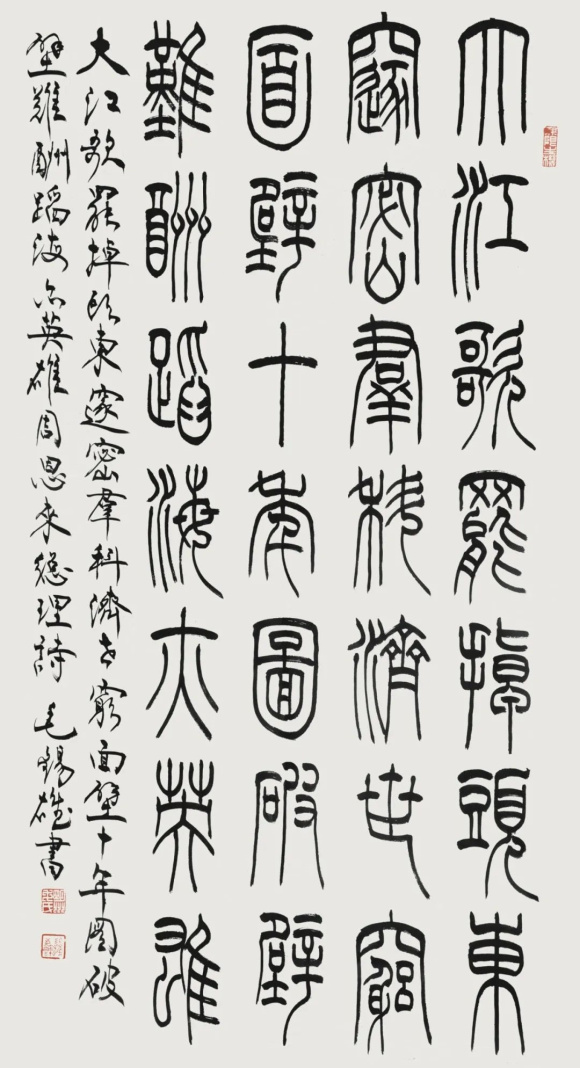 大江歌罷掉頭東
邃密羣科濟世窮
面壁十年圖破壁
難酬蹈海亦英雄
大江歌罷掉頭東邃密羣科濟世窮面壁十年圖破
壁難酬蹈海亦英雄周恩來總理詩 毛錫雄書